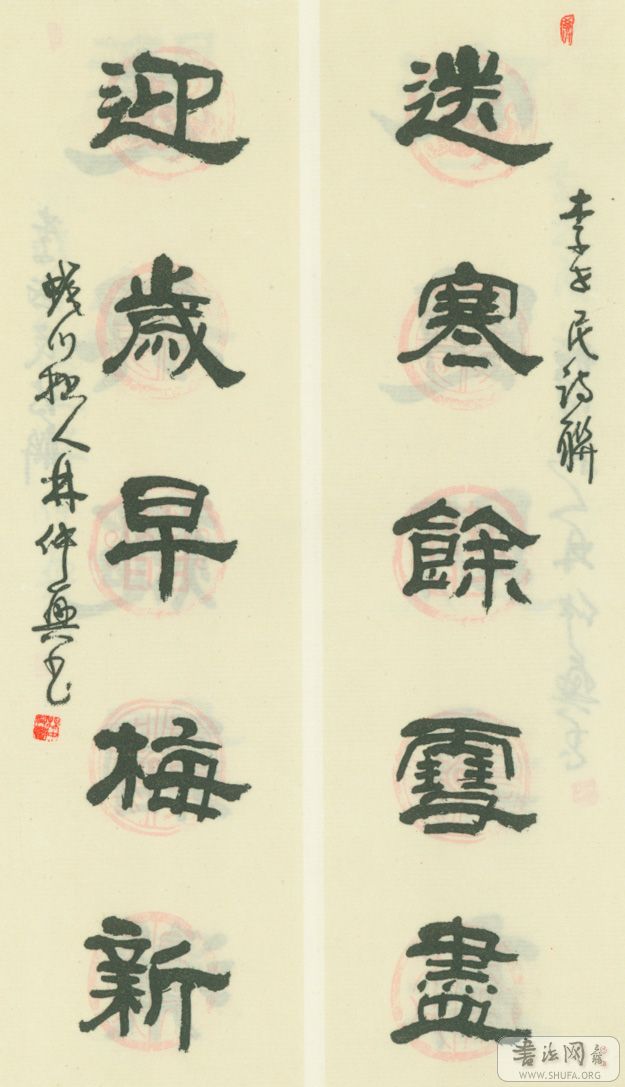 李世民詩聯
送寒餘雪盡
迎歲早梅新
人林仲興书
書法网
WWW.SHUFA.ORG